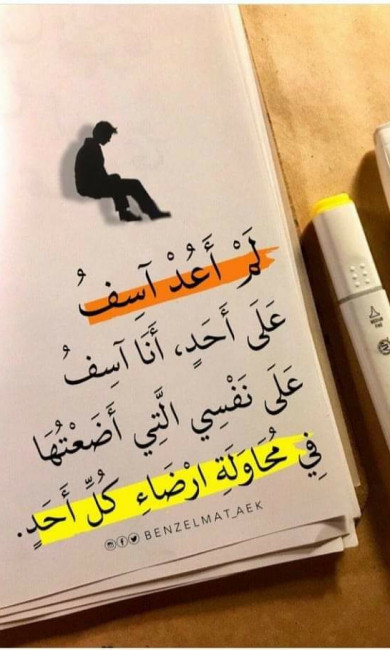 لَمْ أَعُدْ آسِفُ
عَلَى أَحَدٍ، أَنَا آسِفُ
عَلَى نَفْسِي الَّتِي أَضَعْتُهَا
فِي مُحَاوَلَةِ ارْضَاءِ كُلِّ أَحَدٍ.
BENZELMAT_AEK